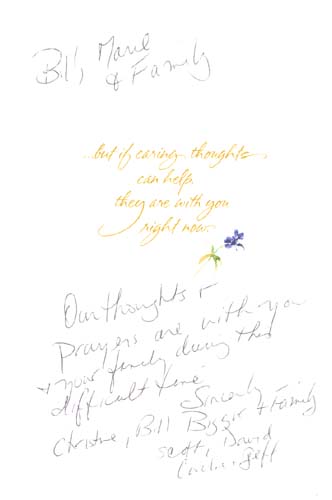 Bill, Marie
& Family
...but if caring thoughts
can help,
they are with you
right now.
Our thoughts &
Prayers are with you
+ your family during this
difficult time
Sincerely
Christine, Bill Biggar & Family
Scott, David
Jeff